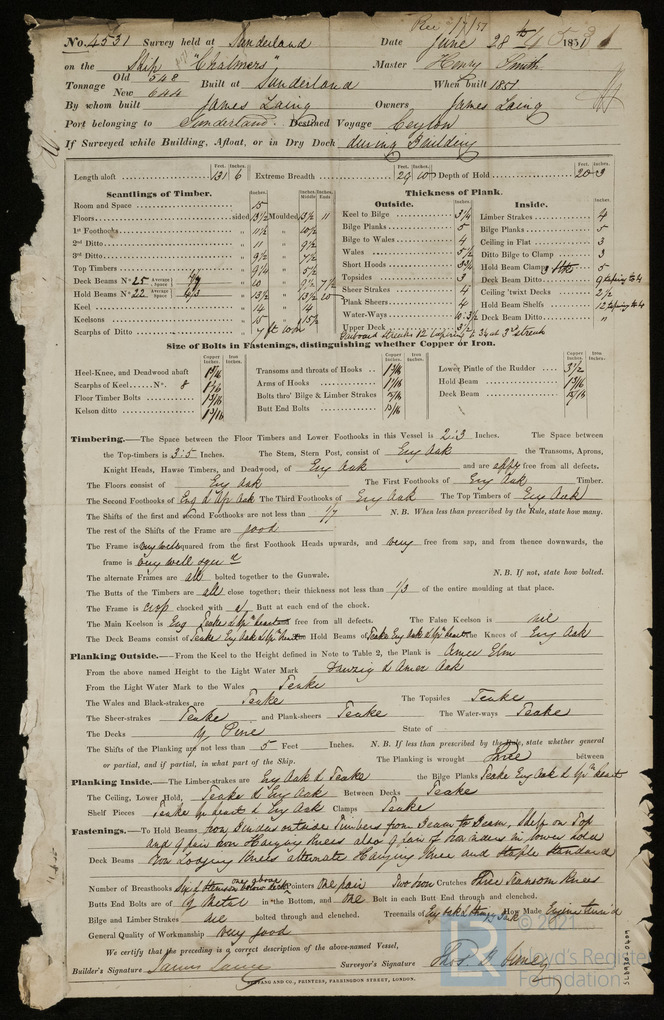 No. 4531 Survey held at Sunderland Date June 28th 1851
on the Ship "Chalmers" Master Henry Smith
Tonnage Old 548 New 644 Built at Sunderland When built 1851
By whom built James Laing Owners James Laing
Port belonging to Sunderland. Destined Voyage Ceylon
If Surveyed while Building, Afloat, or in Dry Dock during Building
Length aloft 131 6 Extreme Breadth 29 10 Depth of Hold 20 3
Scantlings of Timber. Thickness of Plank.
Outside. Inside.
Room and Space 15 Keel to Bilge 3¾ Limber Strakes 4
Floors sided 13½ Moulded 13½ 11 Bilge Planks 5 Bilge Planks 5
1st Foothooks 11½ 10½ Bilge to Wales 4 Ceiling in Flat 3
2nd Ditto 11 9½ Wales 5½ Ditto Bilge to Clamp 3
3rd Ditto 9½ 7½ Short Hoods Hold Beam Clamp 5
Top Timbers 9¼ 5½ Topsides 3 Deck Beam Ditto 9 tapering to 4
Deck Beams No. 25 Average Space 10 Sheer Strakes 4 Ceiling 'twixt Decks 2½
Hold Beams No. 22 Average Space 13½ Plank Sheers 4 Hold Beam Shelfs 12 tapering to 4
Keel 14 14 Water-Ways Deck Beam Ditto "
Keelsons 15 15½ Upper Deck 3½
Scarphs of Ditto 7 ft
Size of Bolts in Fastenings, distinguishing whether Copper or Iron.
Heel-Knee, and Deadwood abaft Transoms and throats of Hooks Lower Pintle of the Rudder 3½
Scarphs of Keel No. 8 Arms of Hooks Hold Beam
Floor Timber Bolts Bolts thro' Bilge & Limber Strakes Deck Beam
Kelson ditto Butt End Bolts
Timbering.—The Space between the Floor Timbers and Lower Foothooks in this Vessel is 2.3 Inches. The Space between
the Top-timbers is 3.5 Inches. The Stem, Stern Post, consist of Eng Oak the Transoms, Aprons,
Knight Heads, Hawse Timbers, and Deadwood, of Eng Oak and are free from all defects.
The Floors consist of Eng Oak The First Foothooks of Eng Oak Timber.
The Second Foothooks of Eng & Afr Oak The Third Foothooks of Eng Oak The Top Timbers of Eng Oak
The Shifts of the first and second Foothooks are not less than 1/7 N.B. When less than prescribed by the Rule, state how many.
The rest of the Shifts of the Frame are good
The Frame is very well squared from the first Foothook Heads upwards, and very free from sap, and from thence downwards, the
frame is very well squd
The alternate Frames are all bolted together to the Gunwale. N.B. If not, state how bolted.
The Butts of the Timbers are all close together; their thickness not less than 1/3 of the entire moulding at that place.
The Frame is crop chocked with a Butt at each end of the chock.
The Main Keelson is Eng Teake & Grn heart free from all defects. The False Keelson is nil
The Deck Beams consist of Teake Eng Oak & Grn heart Hold Beams of Teake Eng Oak & Grn heart The Knees of Eng Oak
Planking Outside.—From the Keel to the Height defined in Note to Table 2, the Plank is Amer Elm
From the above named Height to the Light Water Mark Danzig & Amer Oak
From the Light Water Mark to the Wales Teake
The Wales and Black-strakes are Teake The Topsides Teake
The Sheer-strakes Teake and Plank-sheers Teake The Water-ways Teake
The Decks Y Pine State of
The Shifts of the Planking are not less than 5 Feet Inches. N.B. If less than prescribed by the Rule, state whether general
or partial, and if partial, in what part of the Ship. The Planking is wrought Three between
Planking Inside.—The Limber-strakes are Eng Oak & Teake the Bilge Planks Teake Eng Oak & Grn heart
The Ceiling, Lower Hold, Teake & Eng Oak Between Decks Teake
Shelf Pieces Teake Gn heart & Eng Oak Clamps Teake
Fastenings.—To Hold Beams Iron Binders outside Timbers from Beam to Beam, Shelf on Top
and 9 pair Iron Hanging Knees also 9 pair of Iron riders in lower hold
Deck Beams Iron Lodging Knees alternate Hanging Knee and Staple Standard
Number of Breasthooks Six & Stemson one above below deck Pointers One pair Two Iron Crutches Three Transom Knees
Butts End Bolts are of Y Metal in the Bottom, and One Bolt in each Butt End through and clenched.
Bilge and Limber Strakes are bolted through and clenched. Treenails of Eng Oak How Made Engine turned
General Quality of Workmanship Very good
We certify that the preceding is a correct description of the above-named Vessel,
Builder's Signature James Laing Surveyor's Signature
SEYFANG AND CO., PRINTERS, FARRINGDON STREET, LONDON.
LR © 2021
Lloyd's Register
Foundation